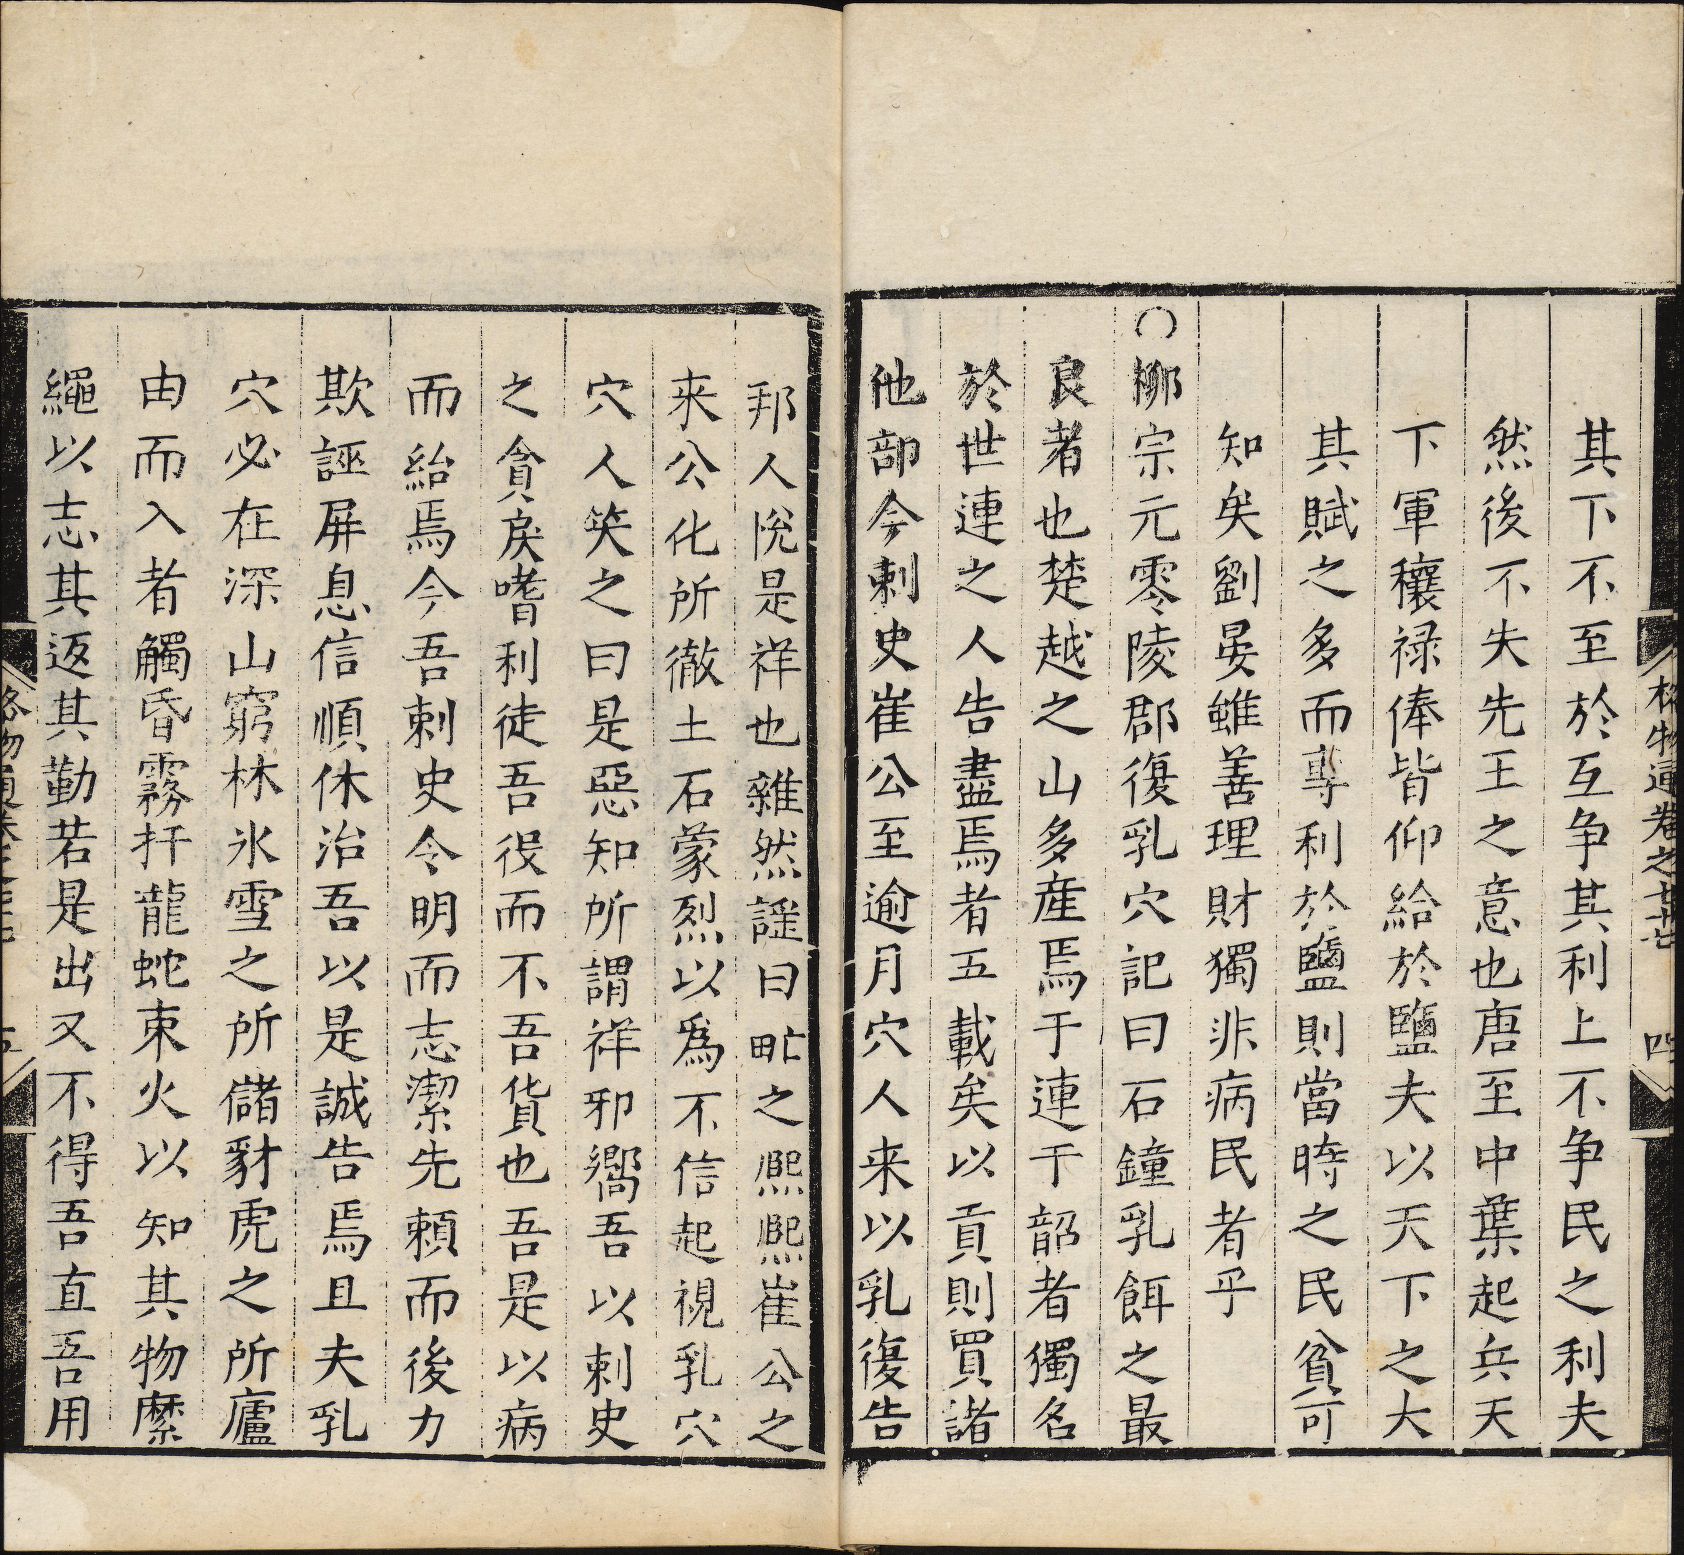 格物通卷之七十七 四
其下不至於互争其利上不争民之利夫
然後不失先王之意也唐至中葉起兵天
下軍穰禄俸皆仰給於鹽夫以天下之大
其賦之多而專利於鹽則當時之民貧可
知矣劉晏雖善理財獨非病民者乎
○柳宗元零陵郡復乳穴記曰石鐘乳餌之最
良者也楚越之山多産焉于連于韶者獨名
於世連之人告盡焉者五載矣以貢則買諸
他部今刺史崔公至逾月穴人来以乳復告
邦人恱是祥也雜然謡曰甿之熈熈崔公之
来公化所徹土石蒙烈以爲不信起視乳穴
穴人笑之曰是惡知所謂祥邪嚮吾以刺史
之貪戾嗜利徒吾役而不吾貨也吾是以病
而紿焉今吾刺史令明而志潔先賴而後力
欺誣屏息信順休治吾以是誠告焉且夫乳
穴必在深山窮林氷雪之所儲豺虎之所廬
由而入者觸昏霧扞龍蛇束火以知其物縻
繩以志其返其勤若是出又不得吾直吾用